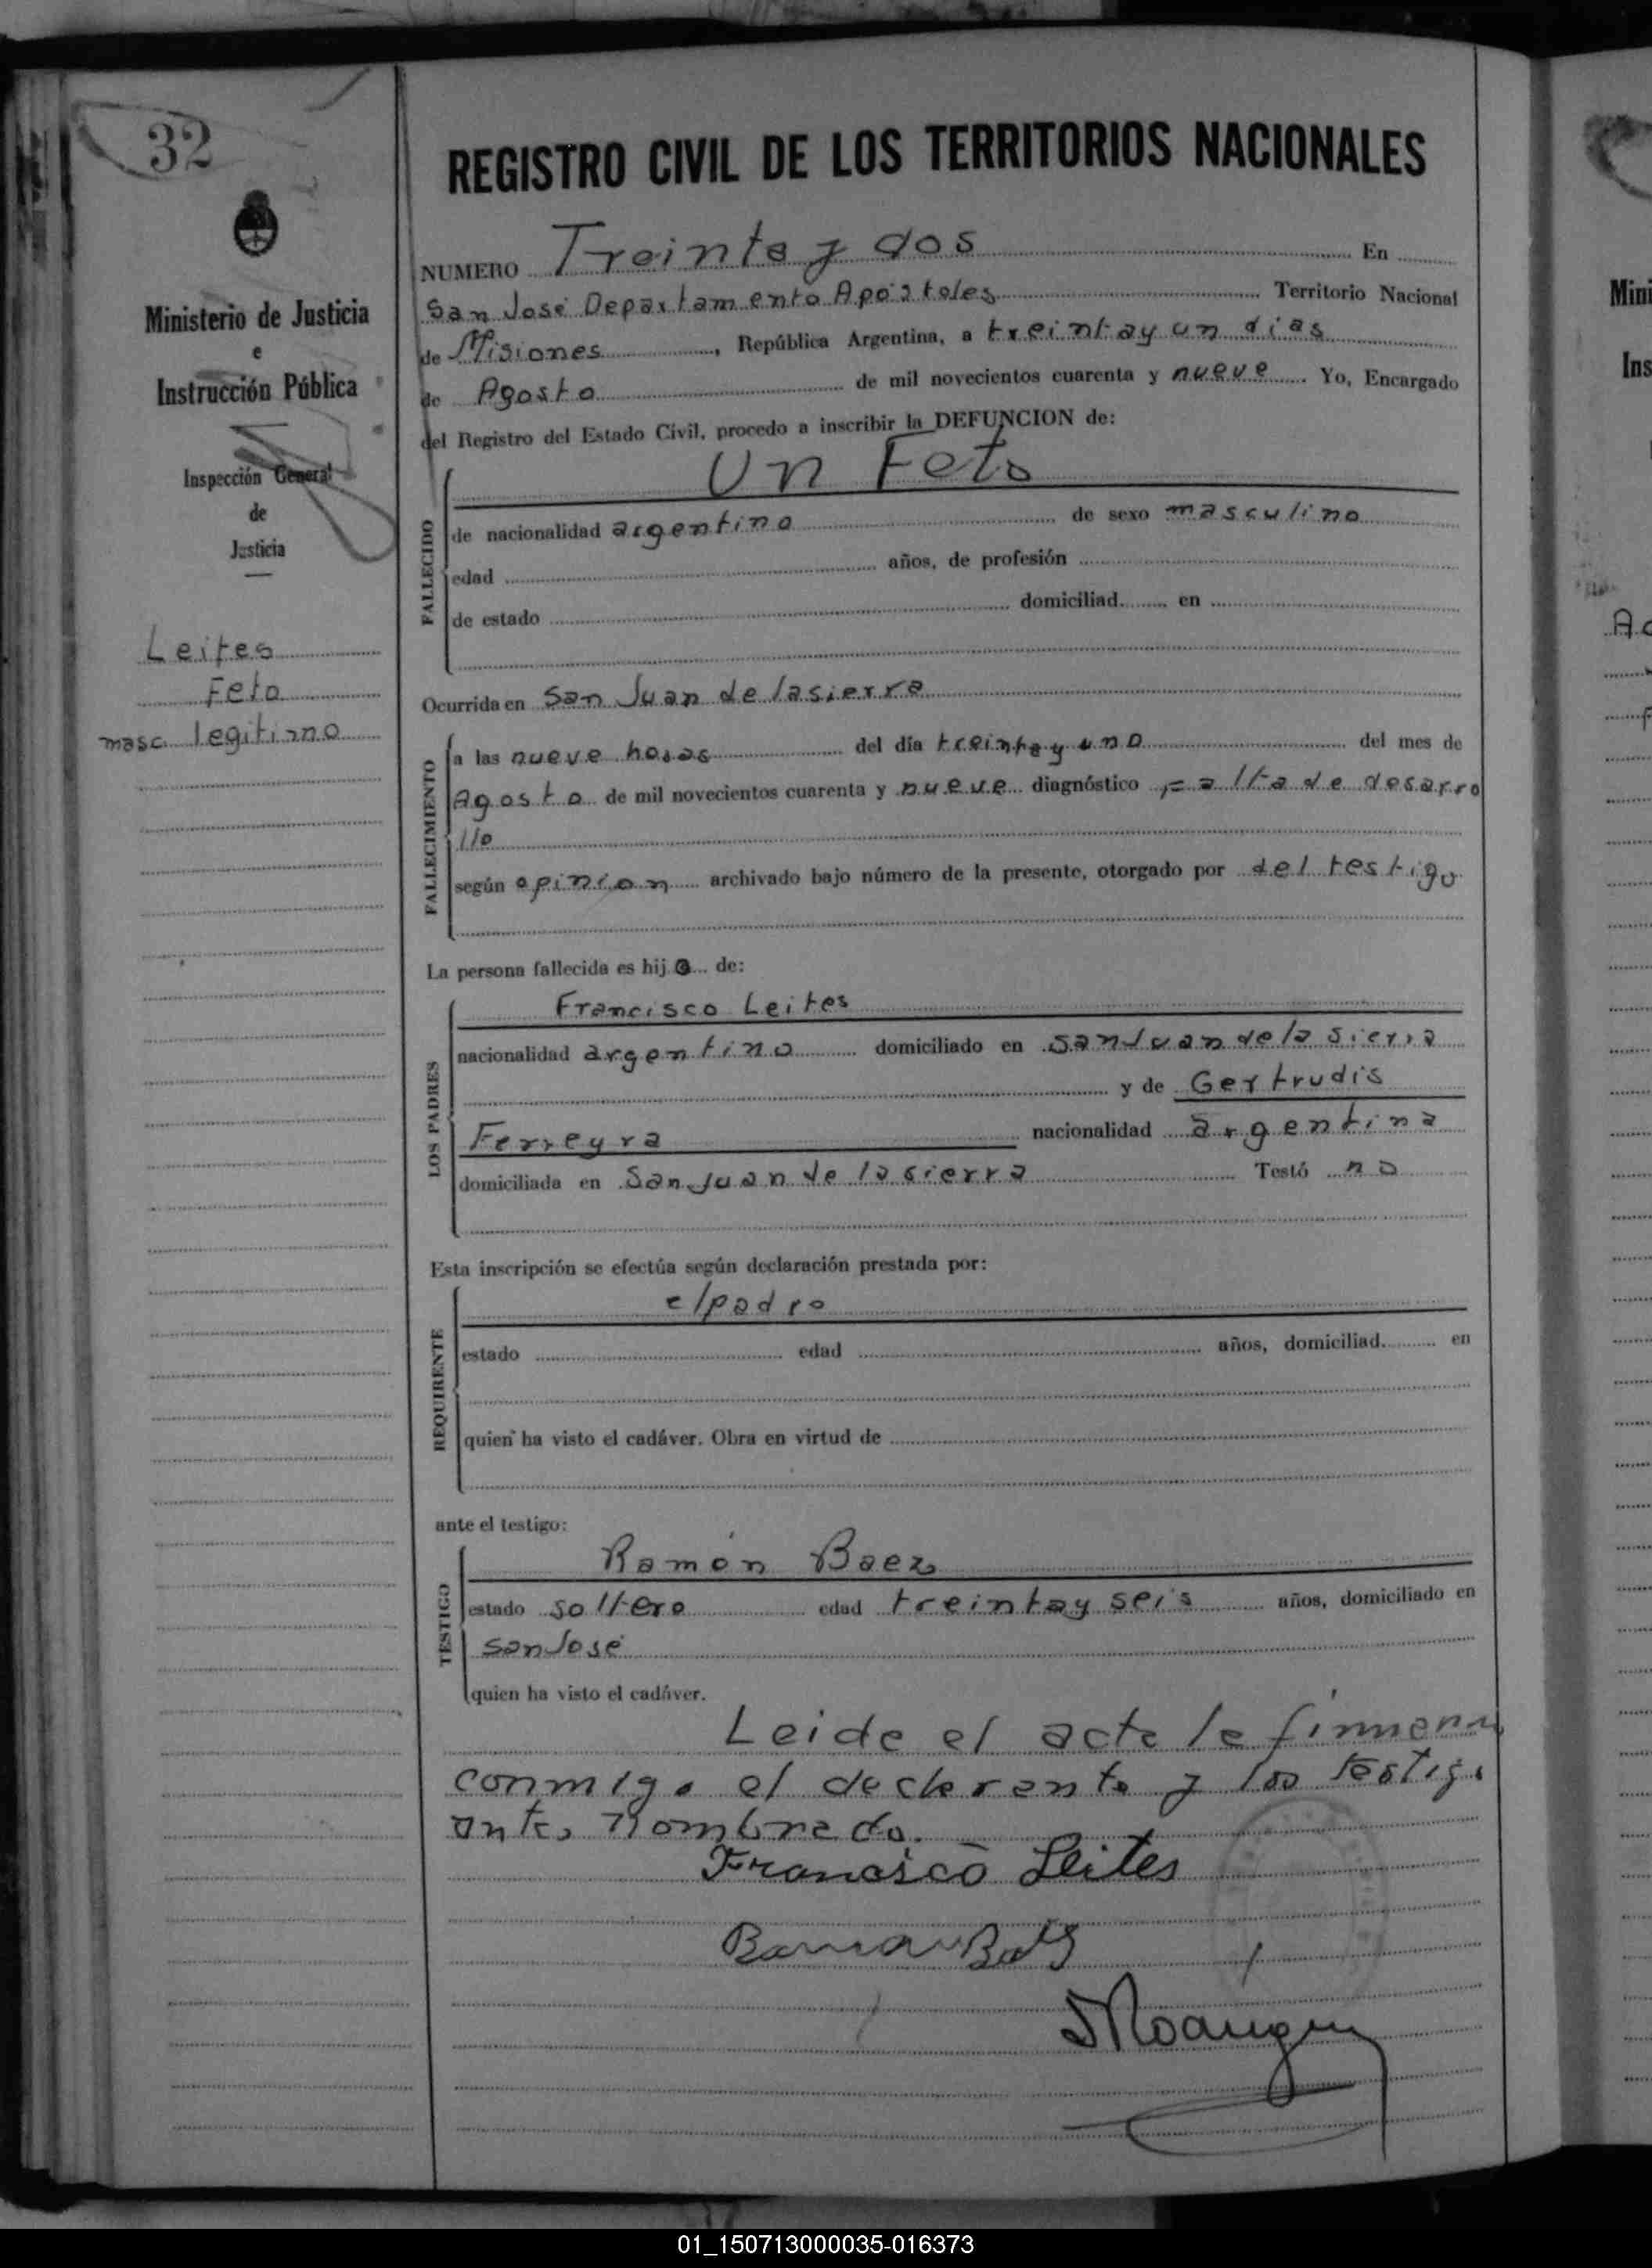 32
Ministerio de Justicia
e
Instrucción Pública
Inspección General
de
Justicia
Leites
Feto
masc. legitimo
REGISTRO CIVIL DE LOS TERRITORIOS NACIONALES
NUMERO Treinta y dos En
San José Departamento Apóstoles Territorio Nacional
de Misiones, República Argentina, a treintay un dias
de Agosto de mil novecientos cuarenta y nueve Yo, Encargado
del Registro del Estado Civil, procedo a inscribir la DEFUNCION de:
FALLECIDO
Un Feto
de nacionalidad argentino de sexo masculino
edad años, de profesión
de estado domiciliad en
Ocurrida en San Juan de lasierra
FALLECIMIENTO
a las nueve horas del día treintay uno del mes de
Agosto de mil novecientos cuarenta y nueve diagnóstico Falta de desarro
llo
según opinion archivado bajo número de la presente, otorgado por del testigo
La persona fallecida es hijo de:
LOS PADRES
Francisco Leites
nacionalidad argentino domiciliado en SanJuan de la sierra
y de Gertrudis
Ferreyra nacionalidad argentina
domiciliada en San Juan de la sierra Testó no
Esta inscripción se efectúa según declaración prestada por:
REQUIRENTE
el padre
estado edad años, domiciliad en
quien ha visto el cadáver. Obra en virtud de
ante el testigo:
TESTIGO
Ramón Baez
estado soltero edad treintay seis años, domiciliado en
San José
quien ha visto el cadáver.
Leida el acta la firman
conmigo el declarante y los testigo
antes nombrado.
Francisco Leites
01_150713000035-016373
Mini
Ins